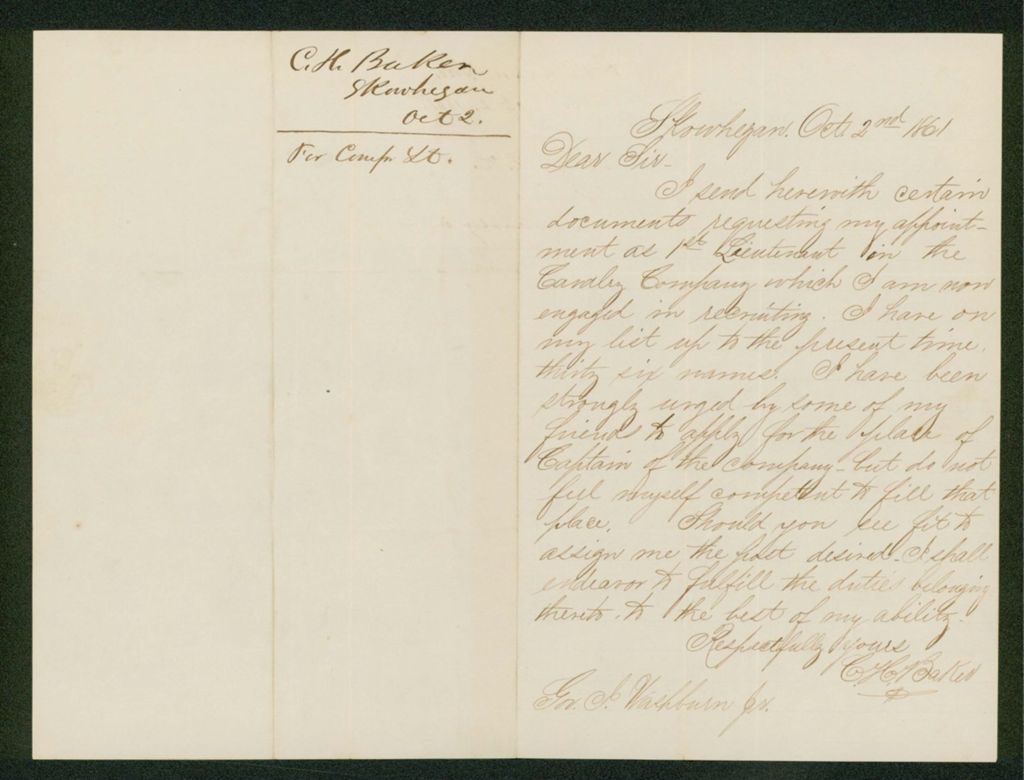 C. H. Baker
Skowhegan
Oct 2.
For Comp. Lt.
Skowhegan. Oct. 2nd 1861
Dear Sir-
I send herewith certain
documents requesting my appoint-
ment as 1st Lieutenant in the
Cavalry Company which I am now
engaged in recruiting. I have on
my list up to the present time,
thirty six names. I have been
strongly urged by some of my
friends to apply for the place of
Captain of the company- but do not
feel myself competent to fill that
place. Should you see fit to
assign me the post desired- I shall
endeavor to fulfill the duties belonging
thereto. to the best of my ability.
Respectfully yours
C. H. Baker
Gov. I. Washburn Jr.